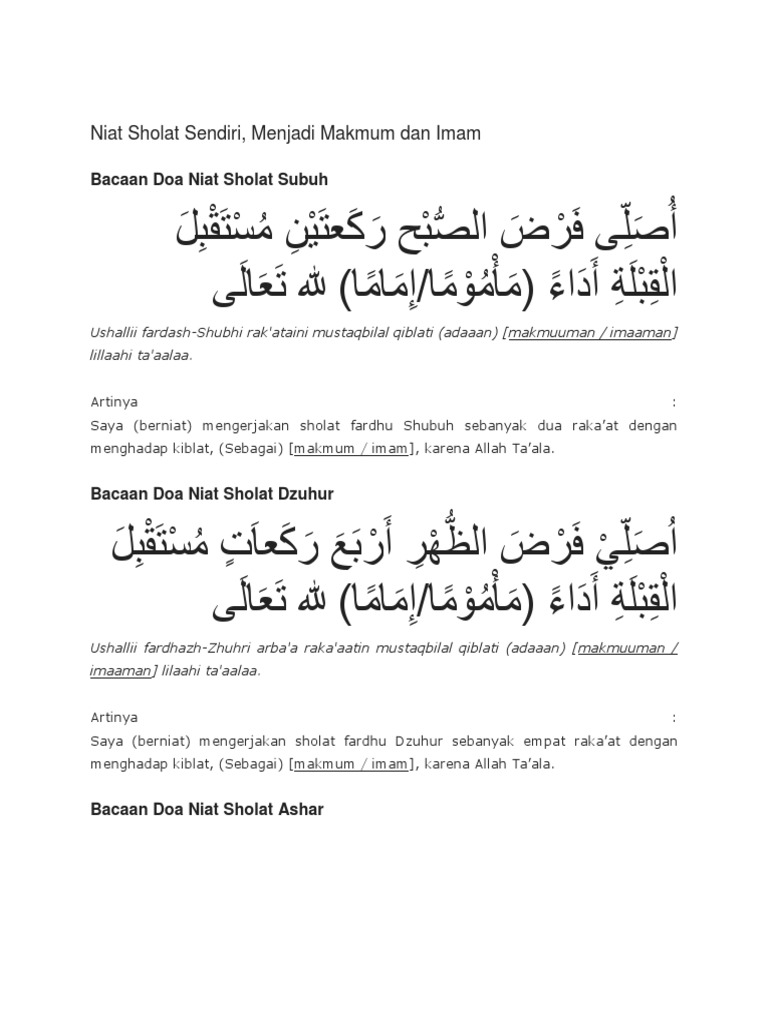 Niat Sholat Sendiri, Menjadi Makmum dan Imam
Bacaan Doa Niat Sholat Subuh
أُصَلِّى فَرْضَ الصُّبْح رَكَعتَيْنِ مُسْتَقْبِلَ
الْقِبْلَةِ أَدَاءً (مَأْمُوْمًا/إِمَامًا) لله تَعَالَى
Ushallii fardash-Shubhi rak'ataini mustaqbilal qiblati (adaaan) [makmuuman / imaaman]
lillaahi ta'aalaa.
Artinya :
Saya (berniat) mengerjakan sholat fardhu Shubuh sebanyak dua raka’at dengan
menghadap kiblat, (Sebagai) [makmum / imam], karena Allah Ta’ala.
Bacaan Doa Niat Sholat Dzuhur
اُصَلِّيْ فَرْضَ الظُّهْرِ أَرْبَعَ رَكَعاَتٍ مُسْتَقْبِلَ
الْقِبْلَةِ أَدَاءً (مَأْمُوْمًا/إِمَامًا) لله تَعَالَى
Ushallii fardhazh-Zhuhri arba'a raka'aatin mustaqbilal qiblati (adaaan) [makmuuman /
imaaman] lilaahi ta'aalaa.
Artinya :
Saya (berniat) mengerjakan sholat fardhu Dzuhur sebanyak empat raka’at dengan
menghadap kiblat, (Sebagai) [makmum / imam], karena Allah Ta’ala.
Bacaan Doa Niat Sholat Ashar